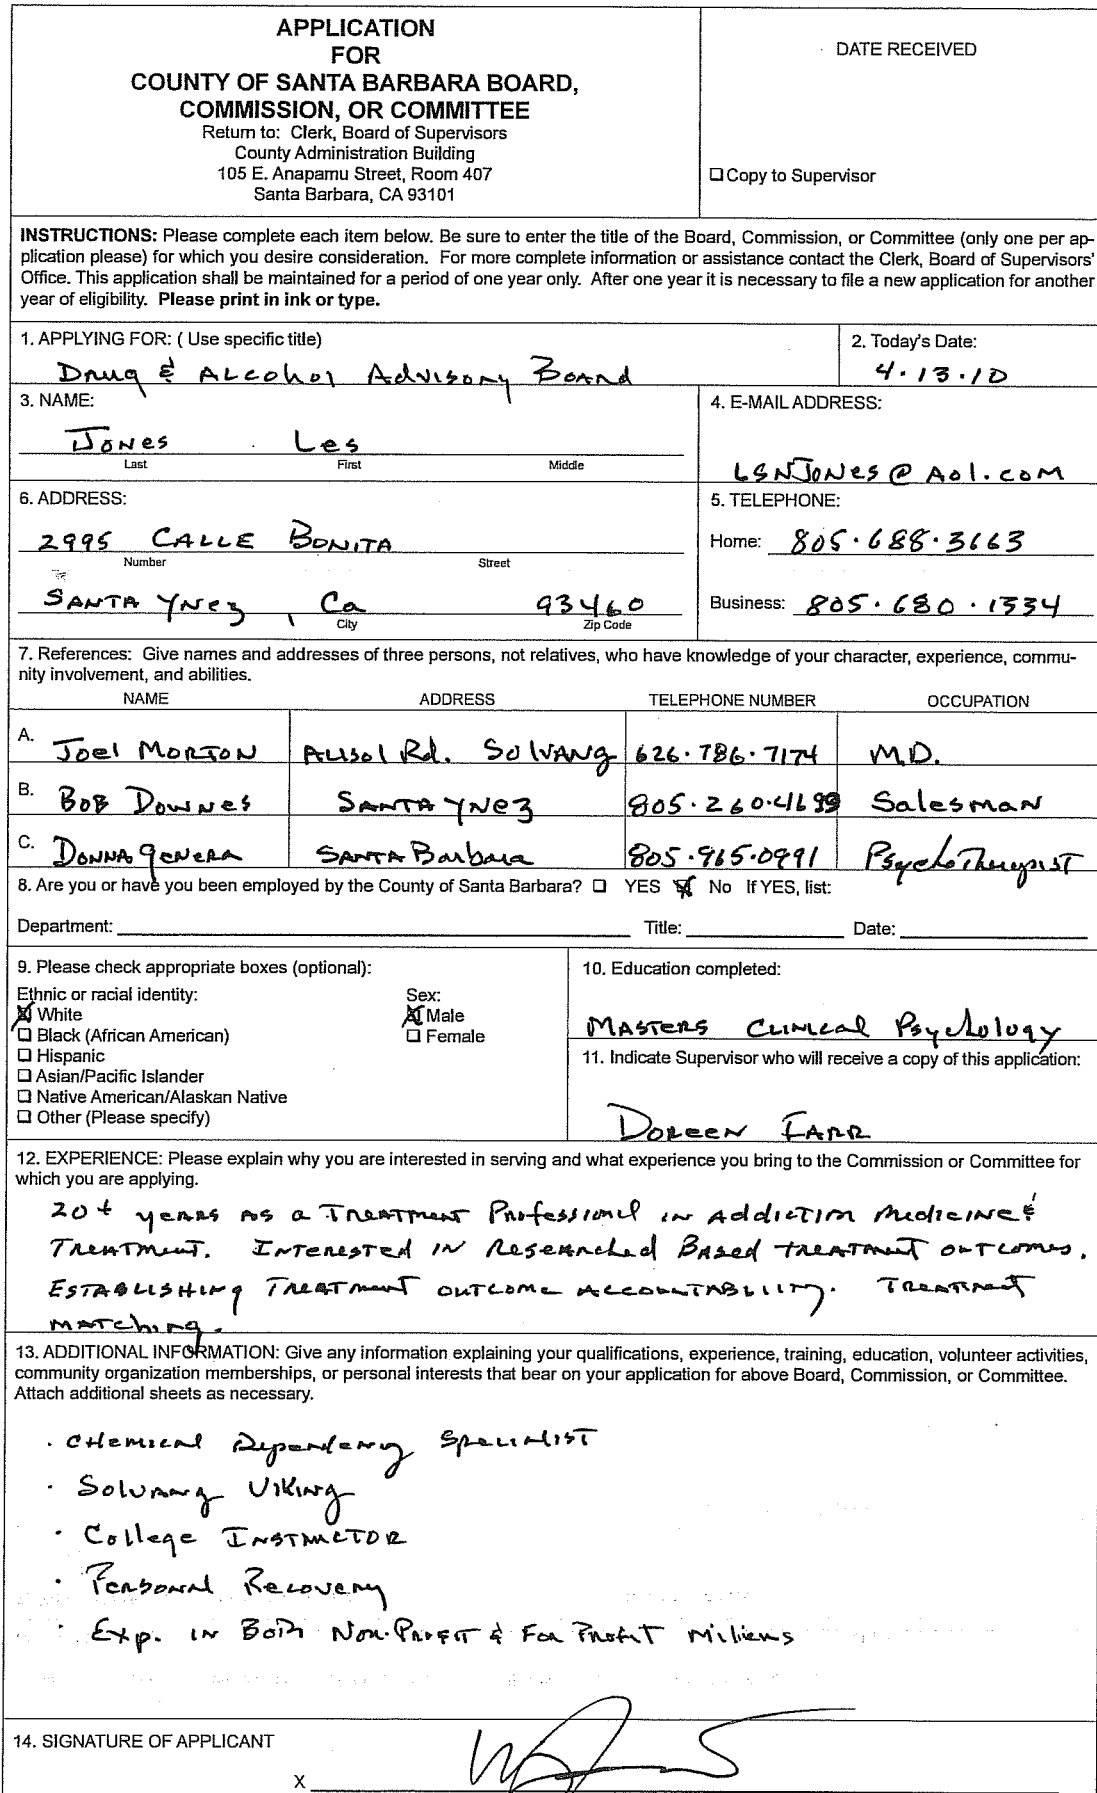 APPLICATION
FOR
COUNTY OF SANTA BARBARA BOARD,
COMMISSION, OR COMMITTEE
Return to: Clerk, Board of Supervisors
County Administration Building
105 E. Anapamu Street, Room 407
Santa Barbara, CA 93101
DATE RECEIVED
☐ Copy to Supervisor
INSTRUCTIONS: Please complete each item below. Be sure to enter the title of the Board, Commission, or Committee (only one per ap-
plication please) for which you desire consideration. For more complete information or assistance contact the Clerk, Board of Supervisors'
Office. This application shall be maintained for a period of one year only. After one year it is necessary to file a new application for another
year of eligibility. Please print in ink or type.
1. APPLYING FOR: ( Use specific title)
Drug & Alcohol Advisory Board
2. Today's Date:
4.13.10
3. NAME:
Jones Les
Last First Middle
4. E-MAIL ADDRESS:
LSNJONES@AOL.COM
6. ADDRESS:
2995 CALLE BONITA
Number Street
SANTA YNEZ, Ca 93460
City Zip Code
5. TELEPHONE:
Home: 805.688.3663
Business: 805.680.1334
7. References: Give names and addresses of three persons, not relatives, who have knowledge of your character, experience, commu-
nity involvement, and abilities.
NAME ADDRESS TELEPHONE NUMBER OCCUPATION
A. Joel Morton Alisol Rd. Solvang 626.786.7174 M.D.
B. Bob Downes Santa Ynez 805.260.4699 Salesman
C. Donna Genera Santa Barbara 805.965.0991 PsychoTherypist
8. Are you or have you been employed by the County of Santa Barbara? ☐ YES ☒ No If YES, list:
Department: Title: Date:
9. Please check appropriate boxes (optional):
Ethnic or racial identity: Sex:
☒ White ☒ Male
☐ Black (African American) ☐ Female
☐ Hispanic
☐ Asian/Pacific Islander
☐ Native American/Alaskan Native
☐ Other (Please specify)
10. Education completed:
Masters Clinical Psychology
11. Indicate Supervisor who will receive a copy of this application:
Doreen Farr
12. EXPERIENCE: Please explain why you are interested in serving and what experience you bring to the Commission or Committee for
which you are applying.
20+ years as a Treatment Professional in Addiction Medicine &
Treatment. Interested in Researched Based treatment outcomes.
Establishing Treatment outcome accountability. Treatment
matching.
13. ADDITIONAL INFORMATION: Give any information explaining your qualifications, experience, training, education, volunteer activities,
community organization memberships, or personal interests that bear on your application for above Board, Commission, or Committee.
Attach additional sheets as necessary.
· Chemical Dependency Specialist
· Solvang Viking
· College Instructor
· Personal Recovery
· Exp. in Both Non-Profit & For Profit Milieus
14. SIGNATURE OF APPLICANT
X